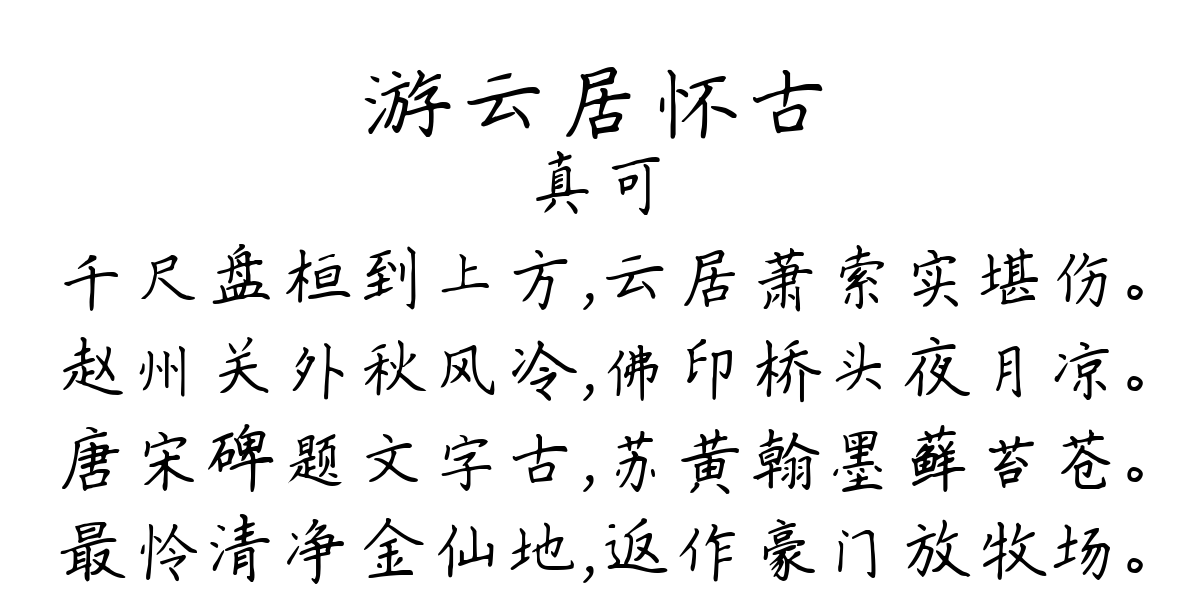 游云居怀古
真可
千尺盘桓到上方,云居萧索实堪伤。
赵州关外秋风冷,佛印桥头夜月凉。
唐宋碑题文字古,苏黄翰墨藓苔苍。
最怜清净金仙地,返作豪门放牧场。